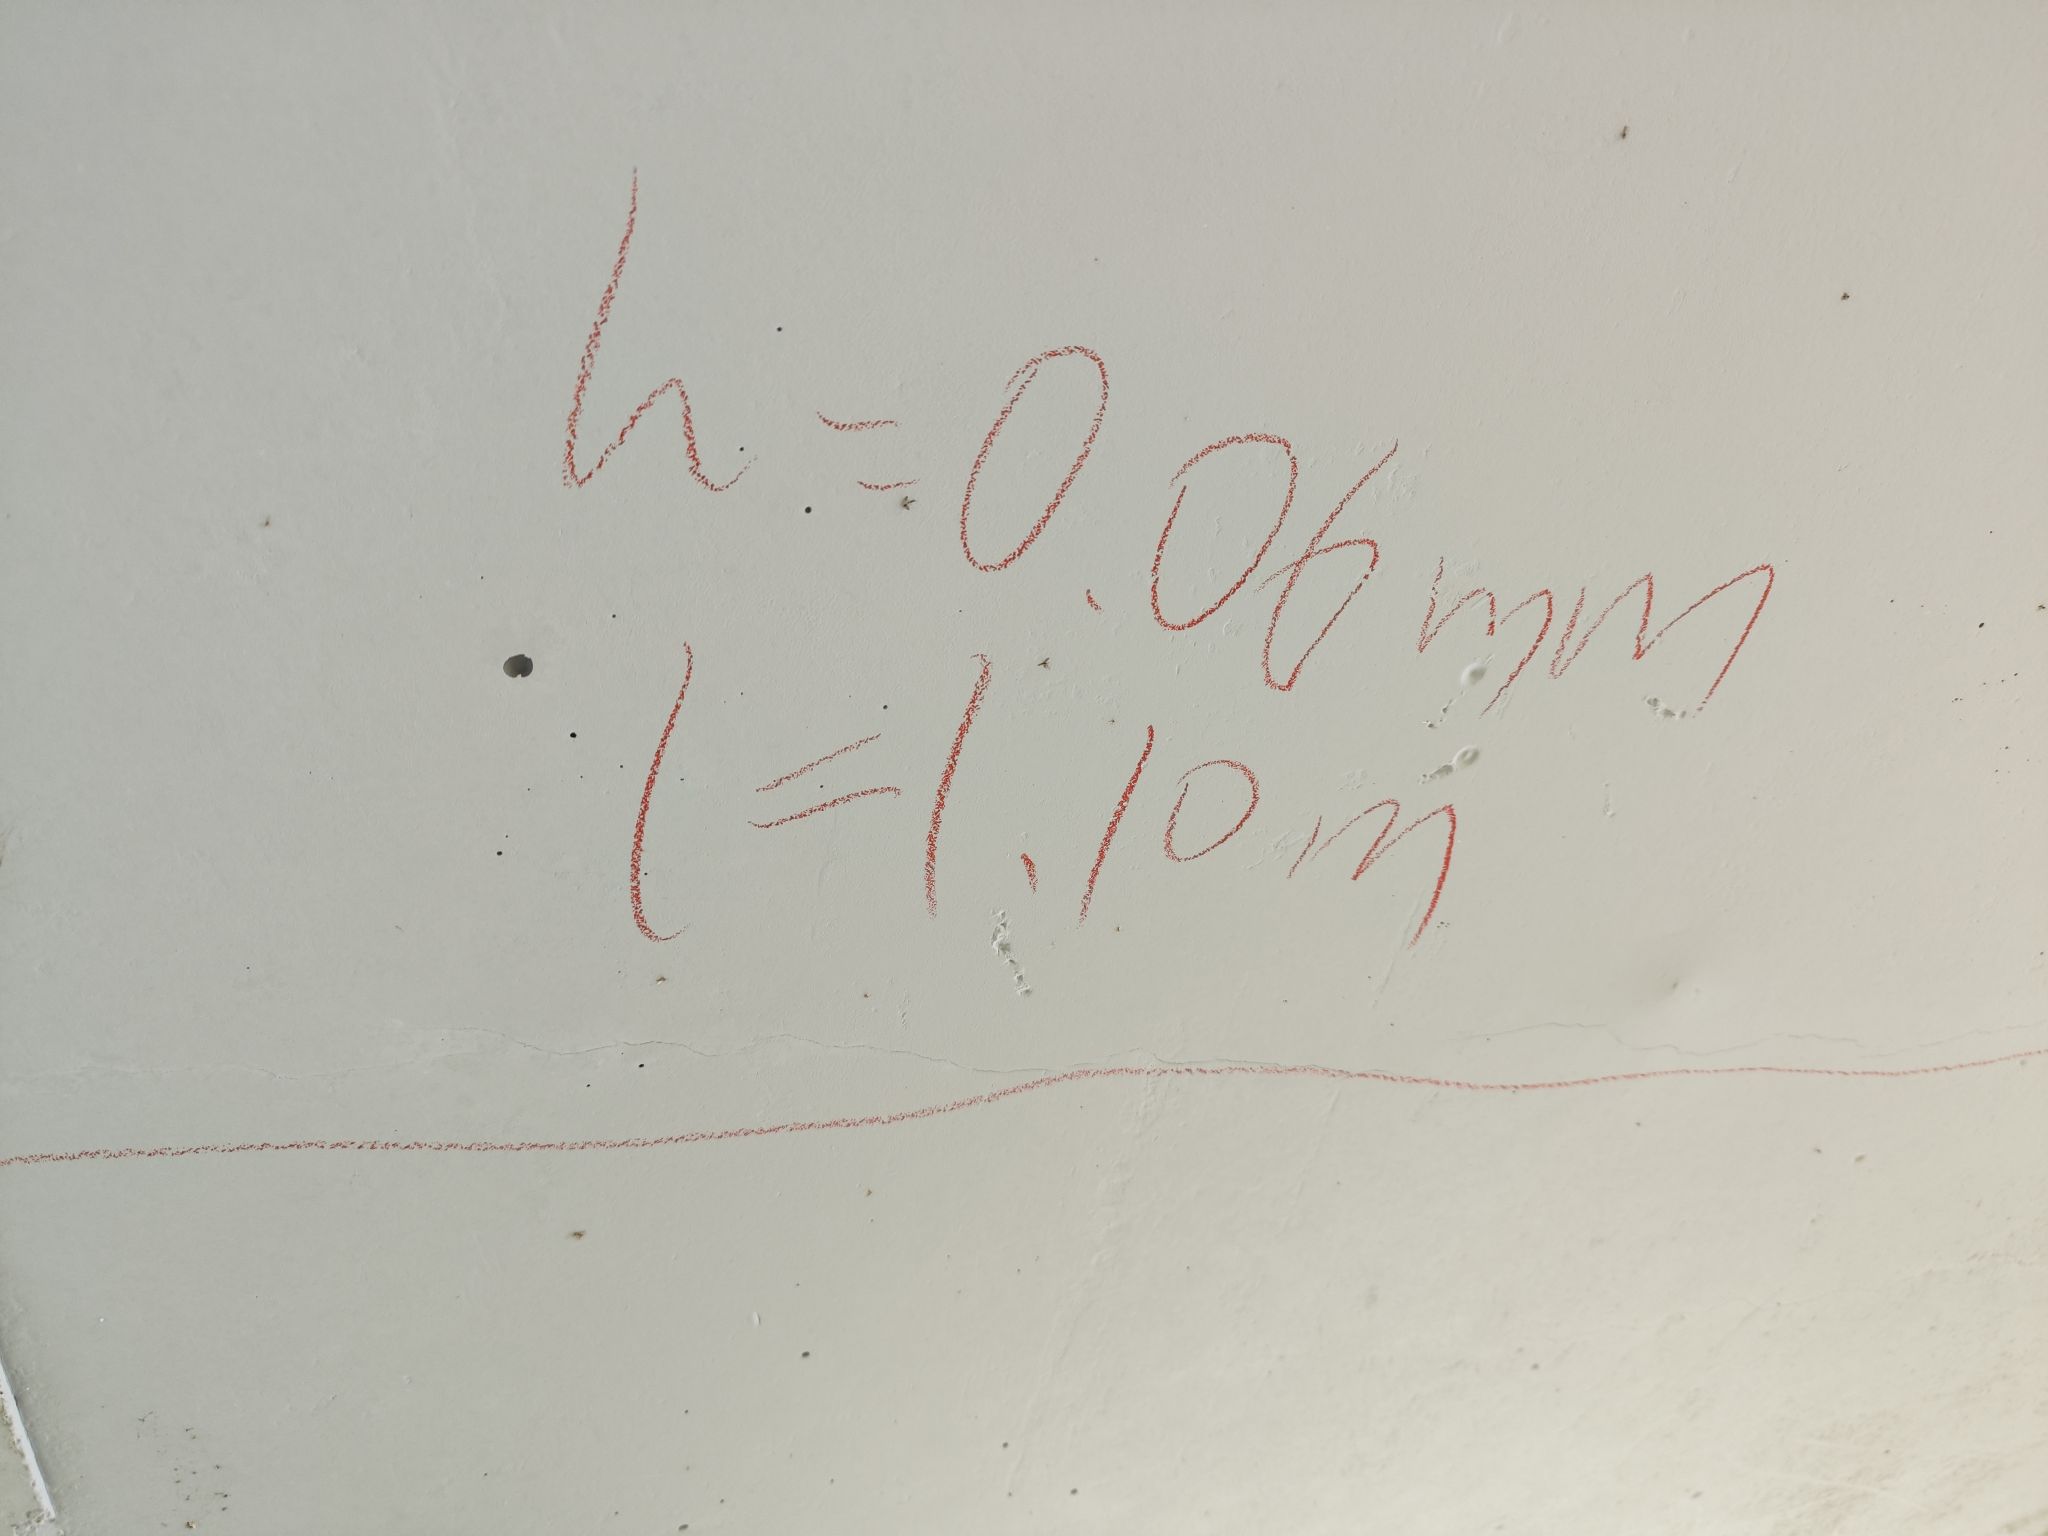 h=0.06mm
l=1.10m